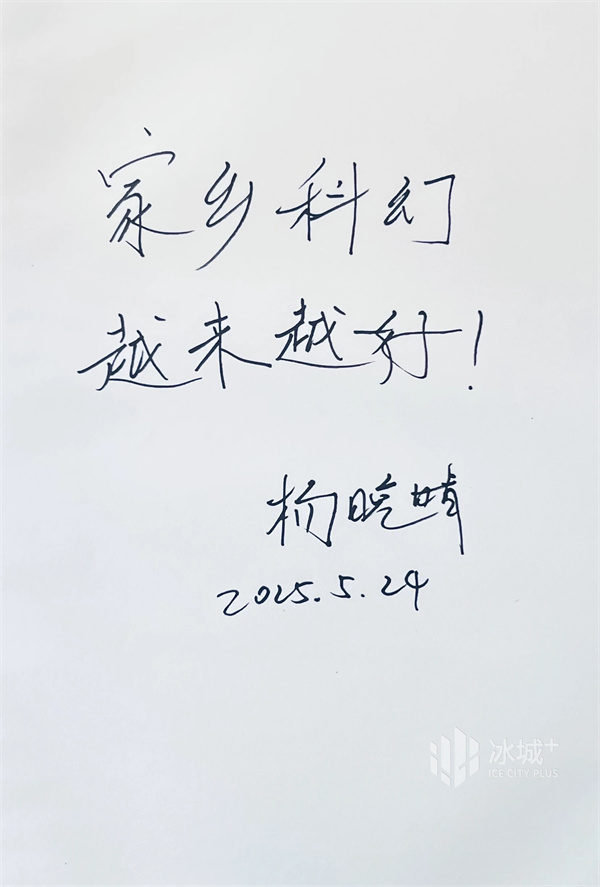 家乡科幻
越来越好！
杨晚晴
2025.5.24
冰城+
ICE CITY PLUS